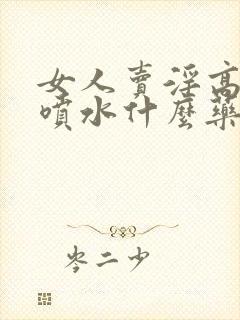 女人賣淫高
噴水什麼藥
岑二少